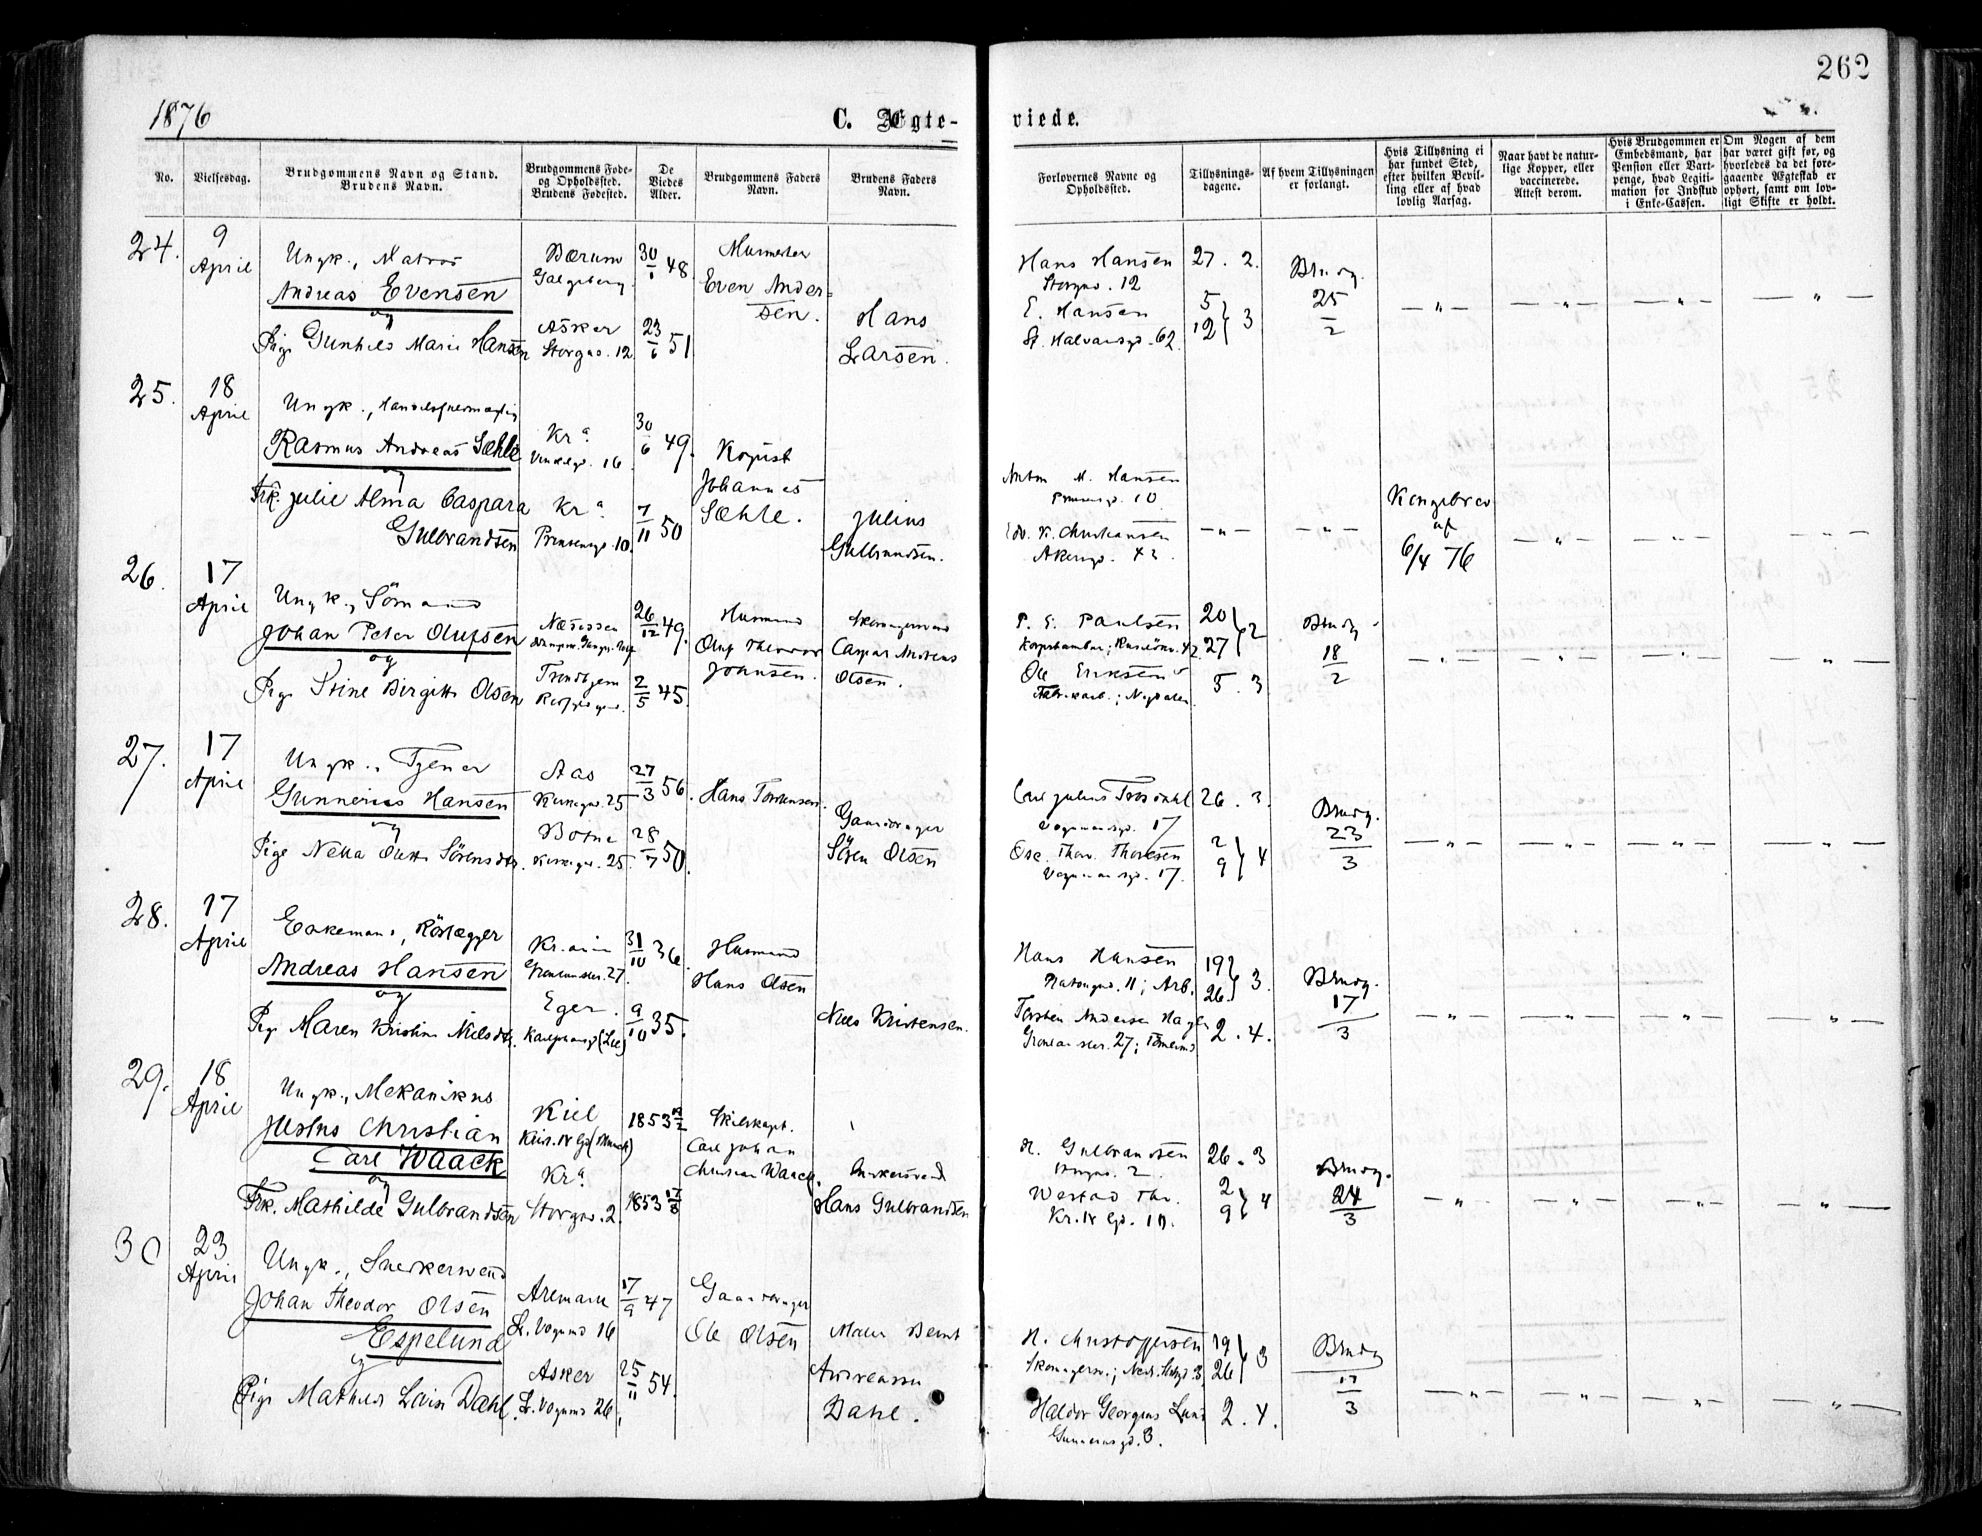 262
1876
C. Ægte-
viede.
No.
Vielsesdag.
Brudgommens Navn og Stand.
Brudens Navn.
Brudgommens Føde-
og Opholdssted.
Brudens Fødested.
De
Viedes
Alder.
Brudgommens Faders
Navn.
Brudens Faders
Navn.
Forlovernes Navne og
Opholdssted.
Tillysnings-
dagene.
Af hvem Tillysningen
er forlangt.
Hvis Tillysning ei
har fundet Sted,
efter hvilken Bevil-
ling eller af hvad
lovlig Aarsag.
Naar havt de natur-
lige Kopper, eller
vaccinerede.
Attest derom.
Hvis Brudgommen er
Embedsmand, har
Pension eller Vart-
penge, hvad Legiti-
mation for Indskud
i Enke-Cassen.
Om Nogen af dem
har været gift før, og
hvorledes da det fore-
gaaende Ægteskab er
ophørt, samt om lov-
ligt Skifte er holdt.
24.
9
April
Ungk., Matros
Andreas Evensen
og
Pige Gunhild Marie Hansen
Bærum
Galgeberg
Asker
Storgad. 12
30/1 48
23/6 51
Murmester
Even Ander-
sen.
Hans
Larsen.
Hans Hansen
Storgd. 12
E. Hansen
St. Halvardsgd. 62
27. 2.
5
12 } 3
Brudg.
25
2
25.
18
April
Ungk.,
Rasmus Andreas Sæhle
og
Frk. Julie Alma Caspara
Gulbrandsen
Kra
16
Kra
Prinsensgd. 10.
30/6 49.
7/11 50
Kopist
Johannes
Sæhle.
Julius
Gulbrandsen.
Anton M. Hansen
10
Edv. K. Christiansen
Akersgd. 43
Kongebrev
af
6/4 76
26.
17
April
Ungk., Sömand
Johan Peter Olufsen
og
Pige Stine Birgitte Olsen
Næsodden
Trondhjem
26/12 49.
2/5 45.
Husmand
Oluf Theodor
Johnsen.
Skomagersvend
Caspar Andreas
Olsen.
P. E. Paulsen
Ole Eriksen
Fabrikarb.; Nydalen
20
27 } 2
5. 3
Brudg.
18
2
27.
17
April
Ungk., Tjener
Gunnerius Hansen
og
Pige Netta Olette Sörensdtr.
Aas
Kirkegd. 25
Botne
Kirkegd. 25.
27/3 56.
28/7 50.
Hans Torstensen.
Gaardbruger
Sören Olsen
Carl Julius
17
Osc. Thorv. Thoresen
17.
26. 3.
2
9 } 4
Brudg.
23
3
28.
17
April
Enkemand, Rörlægger
Andreas Hansen
og
Pige Maren Kristine Nielsdtr.
Kr.ania
Grönlandsler. 27.
Eger.
31/10 36.
9/10 35.
Husmand
Hans Olsen
Niels Kristensen.
Hans Hansen
11; Arb.
Torsten Andersen Hagen
Grönlandsler. 27; Tömmerm.
19
26 } 3.
2. 4.
Brudg.
17
3
29.
18
April
Ungk., Mekanikus
Justus Christian
Carl Waack
og
Frk. Mathilde Gulbrandsen
Kiel
Kra
Storgd. 2.
1853
1853
Skibskapt.
Carl Johan
Christian Waack.
Snekkersvend
Hans Gulbrandsen
H. Gulbrandsen
Storgd. 2.
26. 3
2
9 } 4
Brudg.
24
3
30
23
April
Ungk., Snekkersvend
Johan Theodor Olsen
Espelund
og
Pige Mathilde Lovise Dahl.
Aremark
L. Vognmd 16
Asker
L. Vognmd 26.
17/9 47
25/11 54.
Gaardbruger
Ole Olsen
Maler Bernt
Andreassen
Dahl.
H. Christophersen
Haldor Georgius Lund
Gunnerusgd. 3.
19
26 } 3
2. 4.
Brudg
17
3